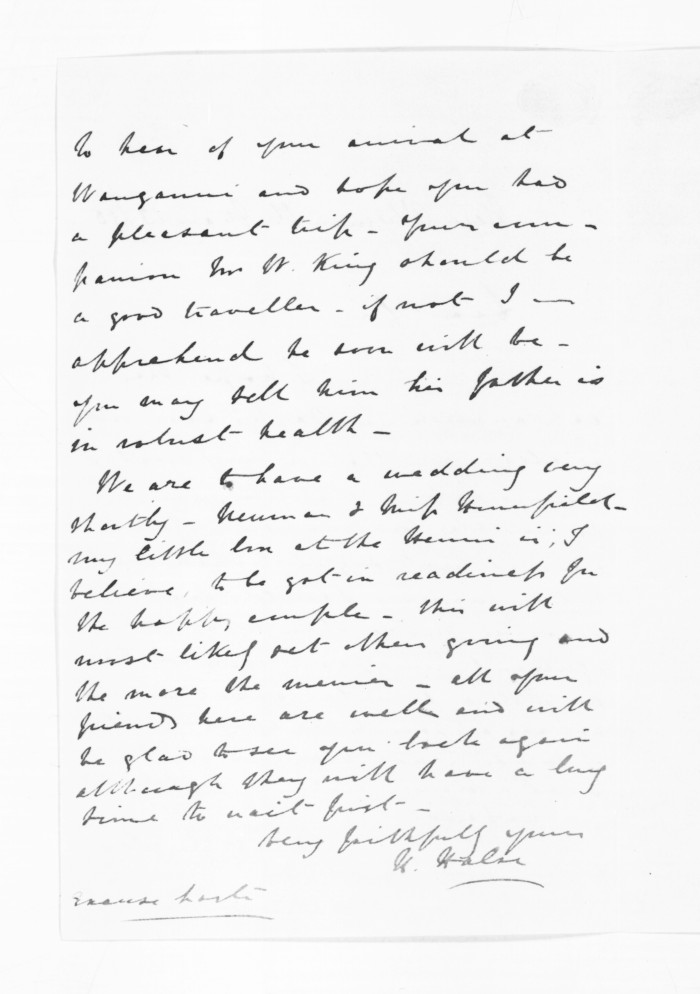 to hear of your arrival at
Wanganui and hope you had
a pleasant trip – Your com-
panion Mr W. King should be
a good traveller – if not I
apprehend he soon will be –
you may tell him his father is
in robust health –
We are to have a wedding very
shortly – Newman & Miss
my little box at the Henui is, I
believe, to be got in readiness for
the happy couple – this will
most likely set others going and
the more the merrier – all your
friends here are well and will
be glad to see you back again
although they will have a long
time to wait first –
Very faithfully yours
H. Halse
Excuse haste